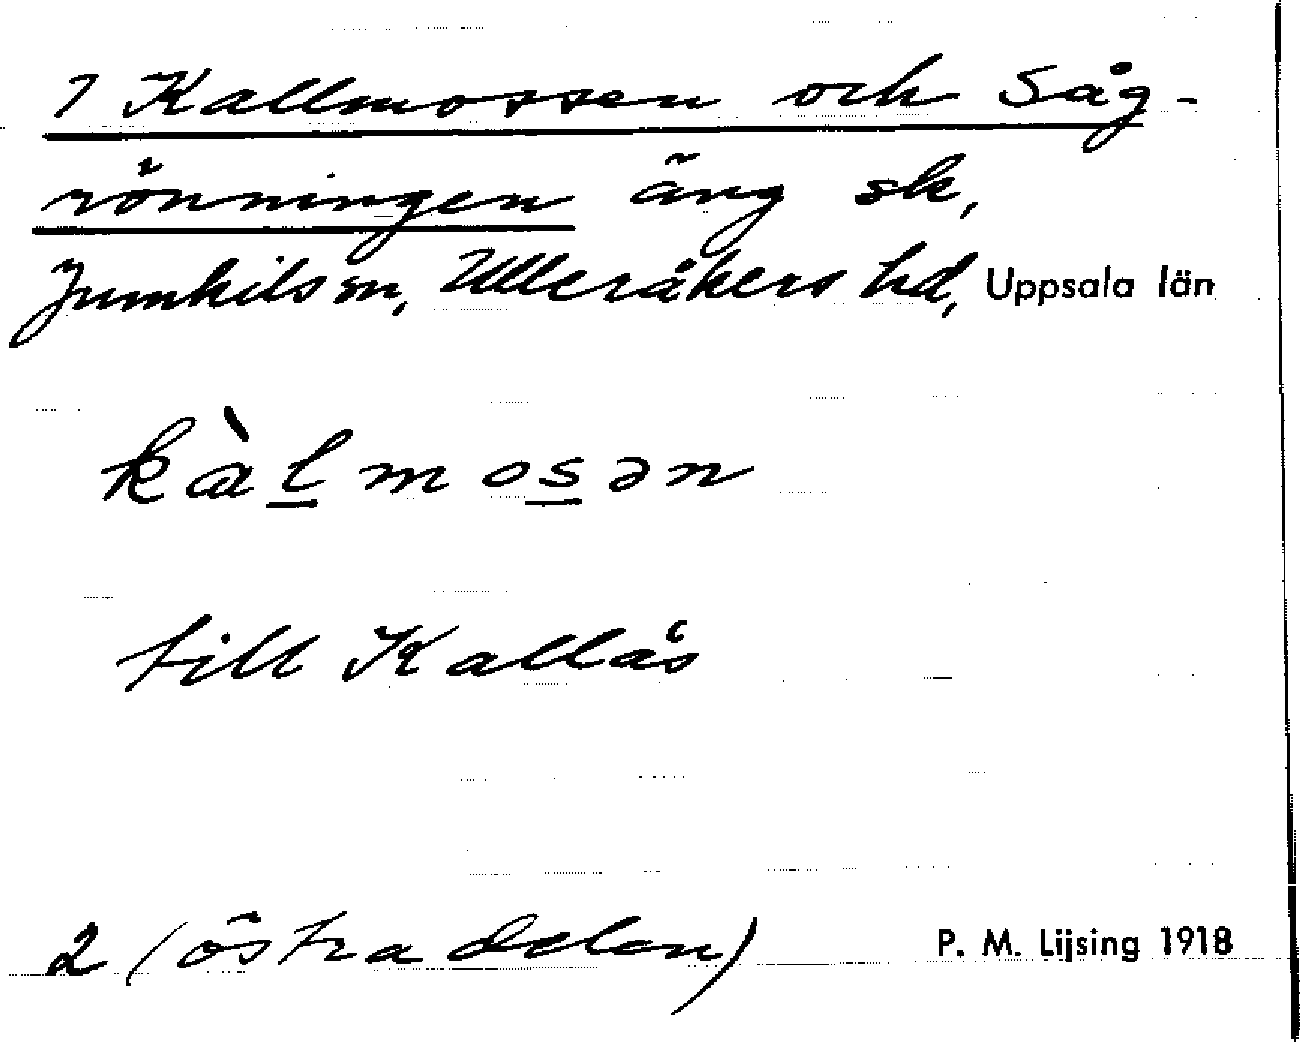 1 Kallmossen och Såg-
rönningen äng sk,
Jumkils sn, Ulleråkers hd, Uppsala län
kàl̲mos̲ən
till Kallås
2 (östra delen)
P. M. Lijsing 1918